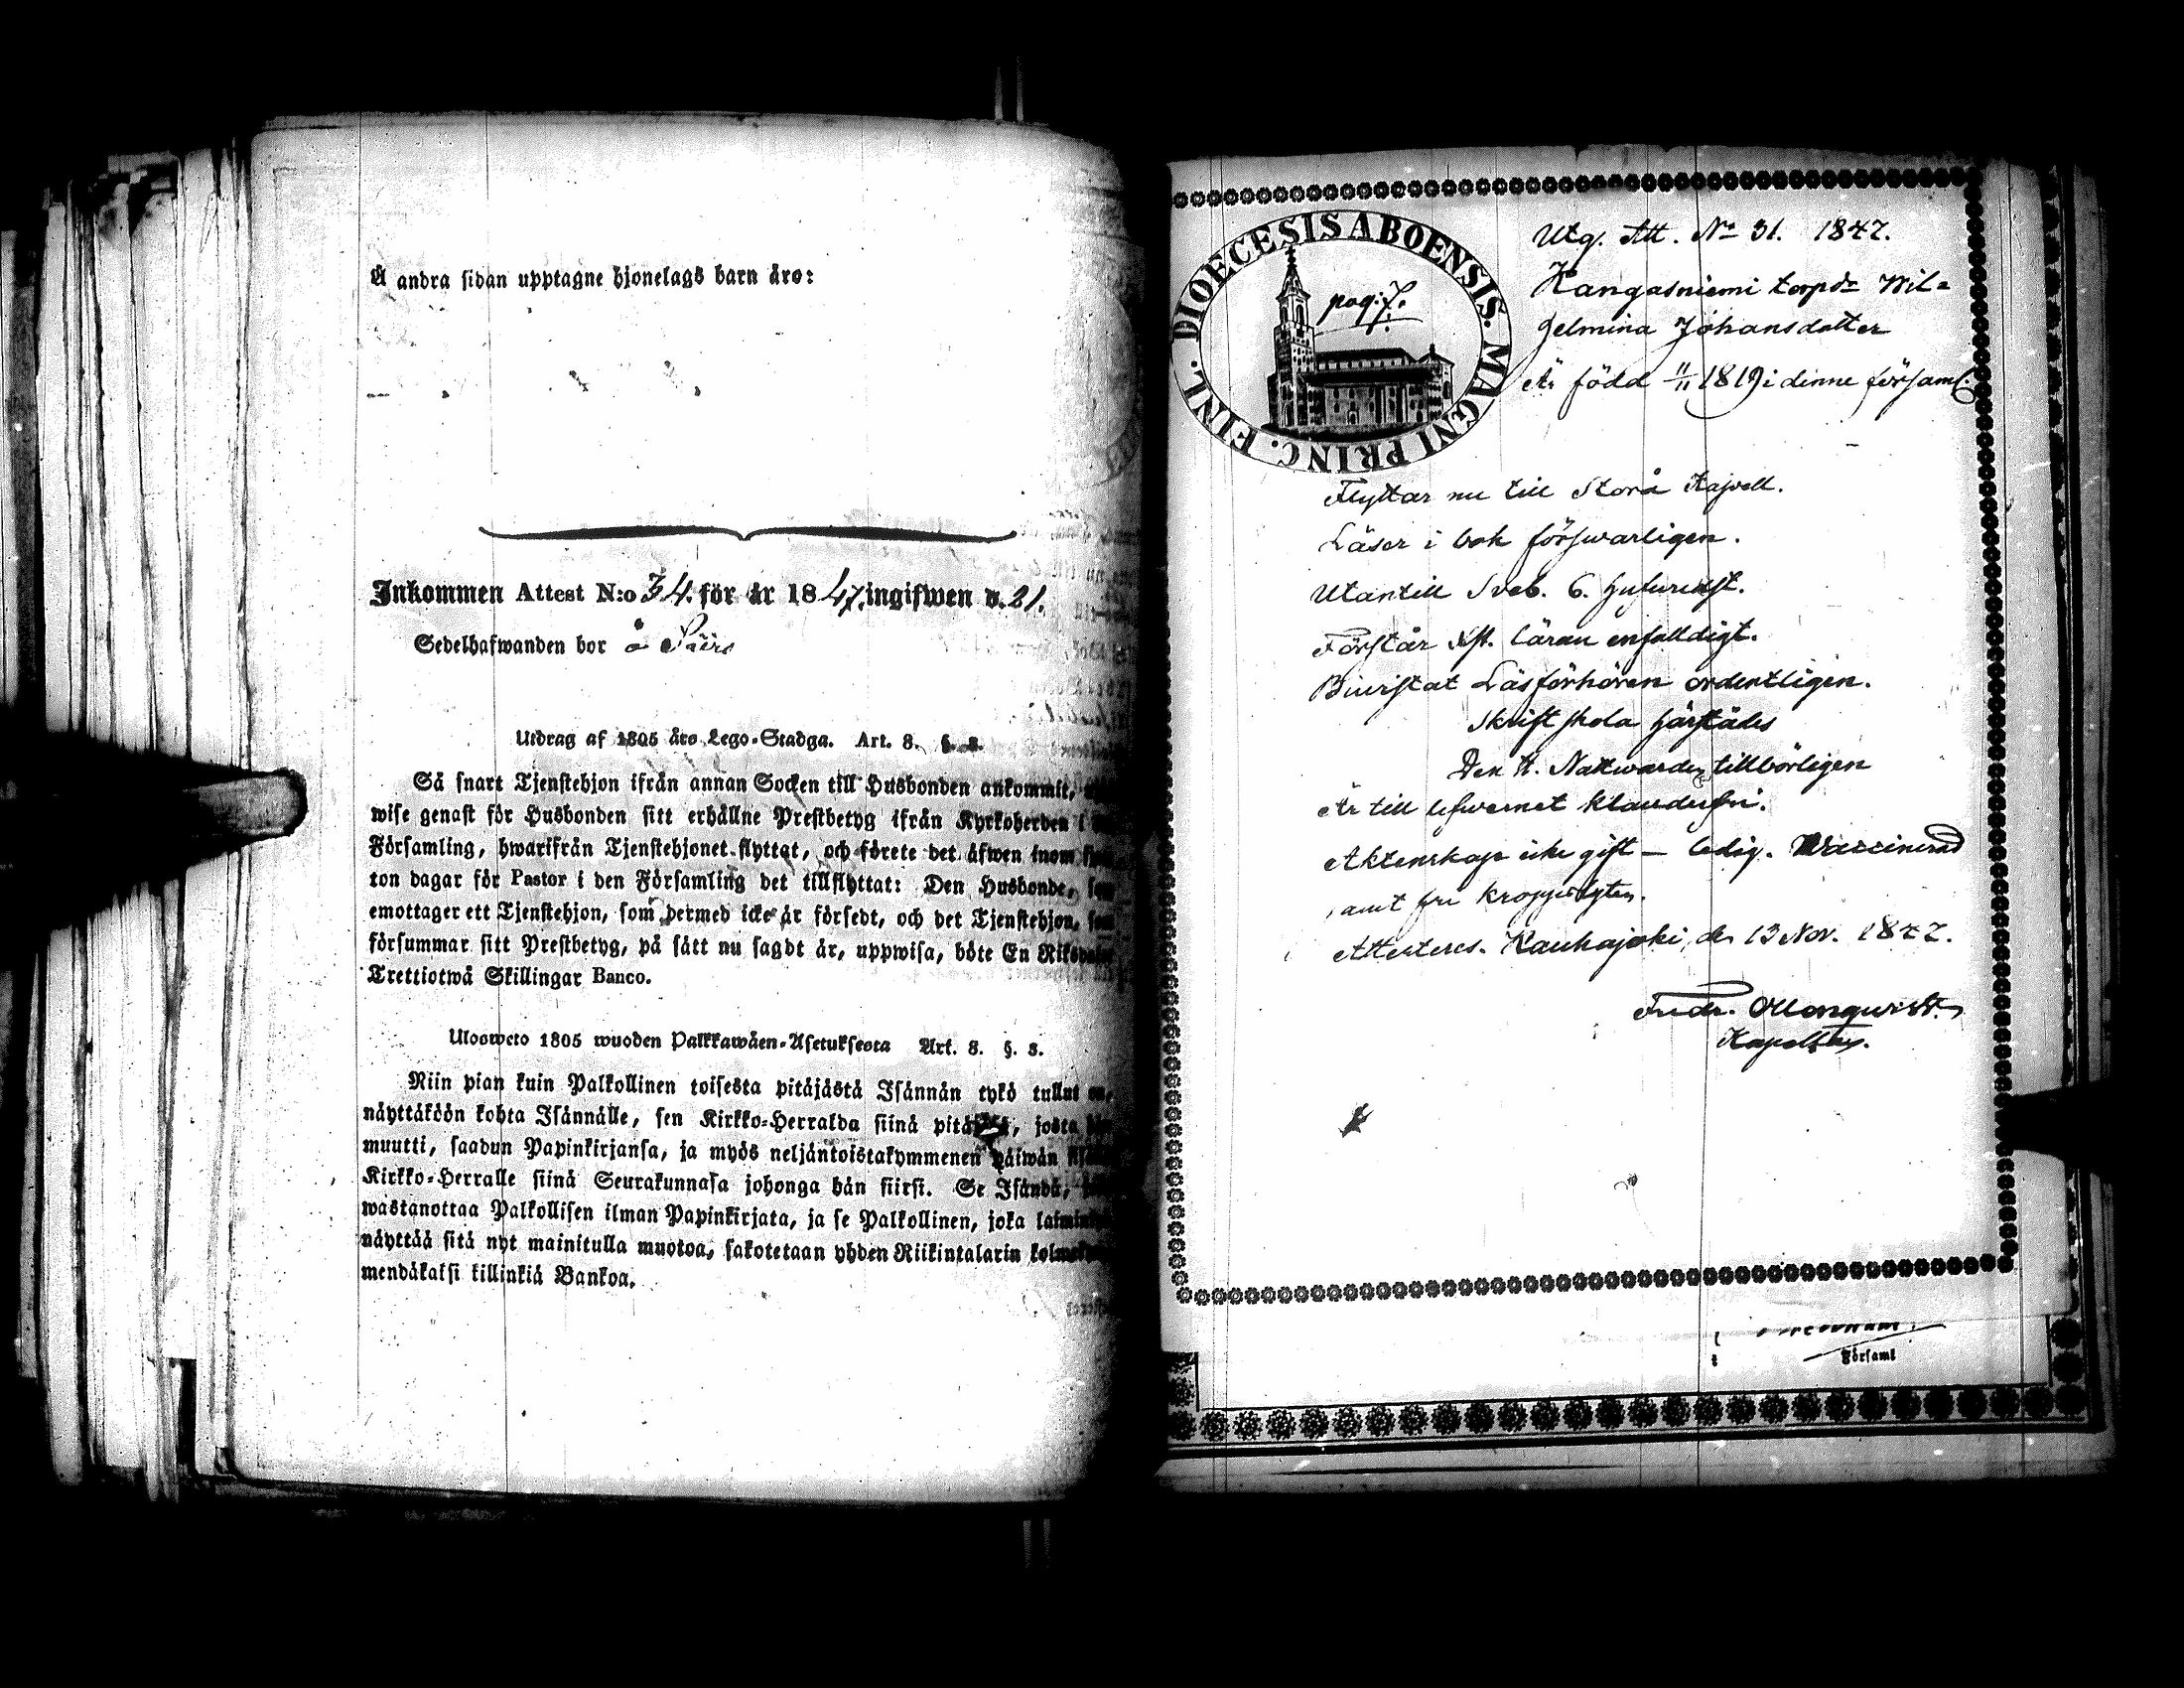 Å andra sidan upptagne hjonelags barn äro:
Inkommen Attest N:o 34. för år 1847. ingifwen d. 21.
Sedelhafwanden bor å Päirs
Utdrag af 1805 års Lego-Stadga. Art. 8. §. 8.
Så snart Tjenstehjon ifrån annan Socken till Husbonden ankommit,
wise genast för Husbonden sitt erhållne Prestbetyg ifrån Kyrkoherden i
Församling, hwarifrån Tjenstehjonet flyttat, och förete det äfwen inom
ton dagar för Pastor i den Församling det tillflyttat: Den Husbonde,
emottager ett Tjenstehjon, som dermed icke är försedt, och det Tjenstehjon,
försummar sitt Prestbetyg, på sätt nu sagdt är, uppwisa, böte En
Trettiotwå Skillingar Banco.
Ulosweto 1805 wuoden Palkkawäen-Asetuksesta Art. 8. §. 8.
Niin pian kuin Palkollinen toisesta pitäjästä Isännän tykö tullut on,
näyttäköön kohta Isännälle, sen Kirkko-Herralda siinä, josta
muutti, saadun Papinkirjansa, ja myös neljäntoistakymmenen päiwän
Kirkko-Herralle siinä Seurakunnasa johonga hän siirsi. Se Isändä,
wastanottaa Palkollisen ilman Papinkirjata, ja se Palkollinen, joka
näyttää sitä nyt mainitulla muotoa, sakotetaan yhden Riikintalarin
mendäkaksi killinkiä Bankoa.
DIOECESIS ABOENSIS. MAGNI PRINC. FINL.
pag: 7.
Utg. Att. No 31. 1847.
Kangasniemi torpdr Wil=
helmina Johansdotter
Är född 11/11 1819 i dinne församl.
Flyttar nu till Storå Kapell.
Läser i bok förswarligen.
Utantill Sveb. 6. hufwudst.
Förstår Xst. läran enfalldigt.
Biwistat Läsförhören ordentligen.
Skriftskola härstädes
Den H. Nattwarden tillbörligen
Är till lefwernet klanderfri.
Aktenskap icke gift — ledig. Waccinerad
samt fri kroppslyten.
Attesteres. Kauhajoki, den 13 Nov. 1847.
Fredr.
Kapellan.
Församl